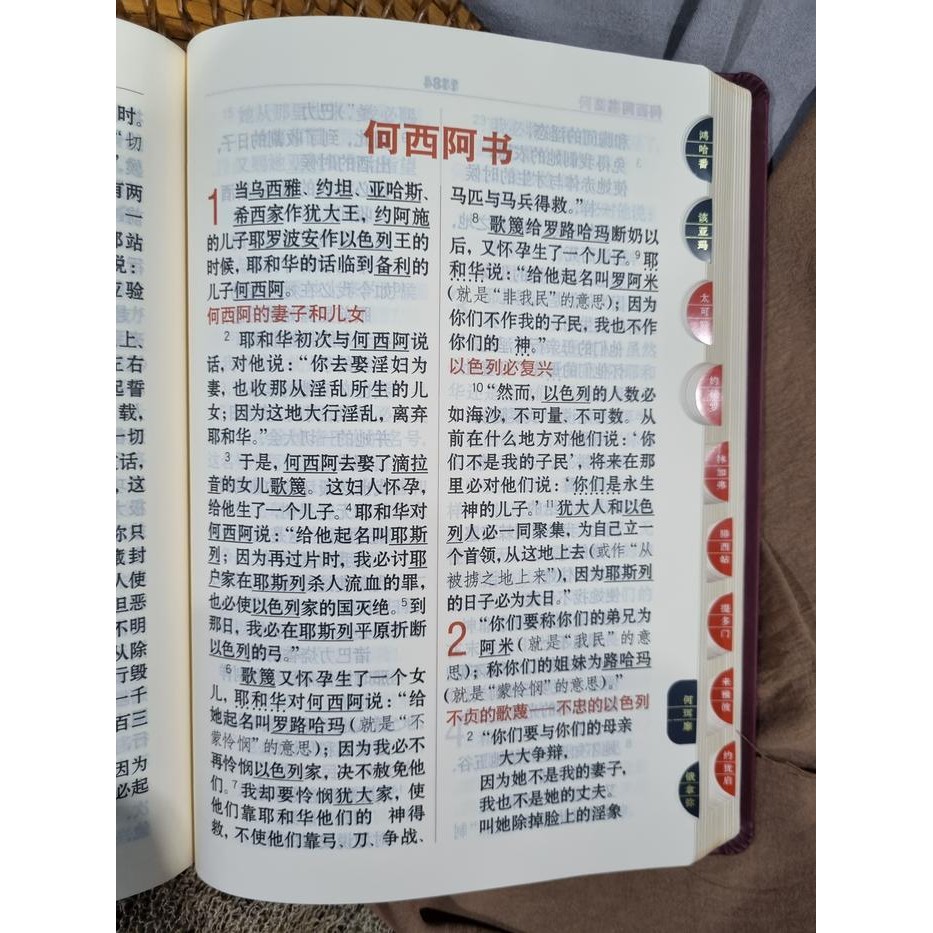 时。
“切
有两
一
说：
上、
左右
起誓
载，
一切
这
你只
人使
但恶
不明
从除
行毁
一千
百三
因为
必起
何西阿书
1 当乌西雅、约坦、亚哈斯、
希西家作犹大王，约阿施
的儿子耶罗波安作以色列王的
时候，耶和华的话临到备利的
儿子何西阿。
何西阿的妻子和儿女
2 耶和华初次与何西阿说
话，对他说：“你去娶淫妇为
妻，也收那从淫乱所生的儿
女；因为这地大行淫乱，离弃
耶和华。”
3 于是，何西阿去娶了滴拉
音的女儿歌篾。这妇人怀孕，
给他生了一个儿子。4耶和华对
何西阿说：“给他起名叫耶斯
列；因为再过片时，我必讨耶
户家在耶斯列杀人流血的罪，
也必使以色列家的国灭绝。5到
那日，我必在耶斯列平原折断
以色列的弓。”
6 歌篾又怀孕生了一个女
儿，耶和华对何西阿说：“给
她起名叫罗路哈玛（就是“不
蒙怜悯”的意思）；因为我必不
再怜悯以色列家，决不赦免他
们。7我却要怜悯犹大家，使
他们靠耶和华他们的 神得
救，不使他们靠弓、刀、争战、
马匹与马兵得救。”
8 歌篾给罗路哈玛断奶以
后，又怀孕生了一个儿子。9耶
和华说：“给他起名叫罗阿米
（就是“非我民”的意思）；因为
你们不作我的子民，我也不作
你们的 神。”
以色列必复兴
10“然而，以色列的人数必
如海沙，不可量，不可数。从
前在什么地方对他们说：‘你
们不是我的子民’，将来在那
里必对他们说：‘你们是永生
神的儿子。’11犹大人和以色
列人必一同聚集，为自己立一
个首领，从这地上去（或作“从
被掳之地上来”），因为耶斯列
的日子必为大日。”
2 “你们要称你们的弟兄为
阿米（就是“我民”的意
思）；称你们的姐妹为路哈玛
（就是“蒙怜悯”的意思）。”
不贞的歌蔑——不忠的以色列
2 “你们要与你们的母亲
大大争辩，
因为她不是我的妻子，
我也不是她的丈夫。
叫她除掉脸上的淫象
鸿哈番
该亚玛
太可
林加弗
腓西帖
提多门
来雅彼
约犹启
何珥摩
俄拿弥